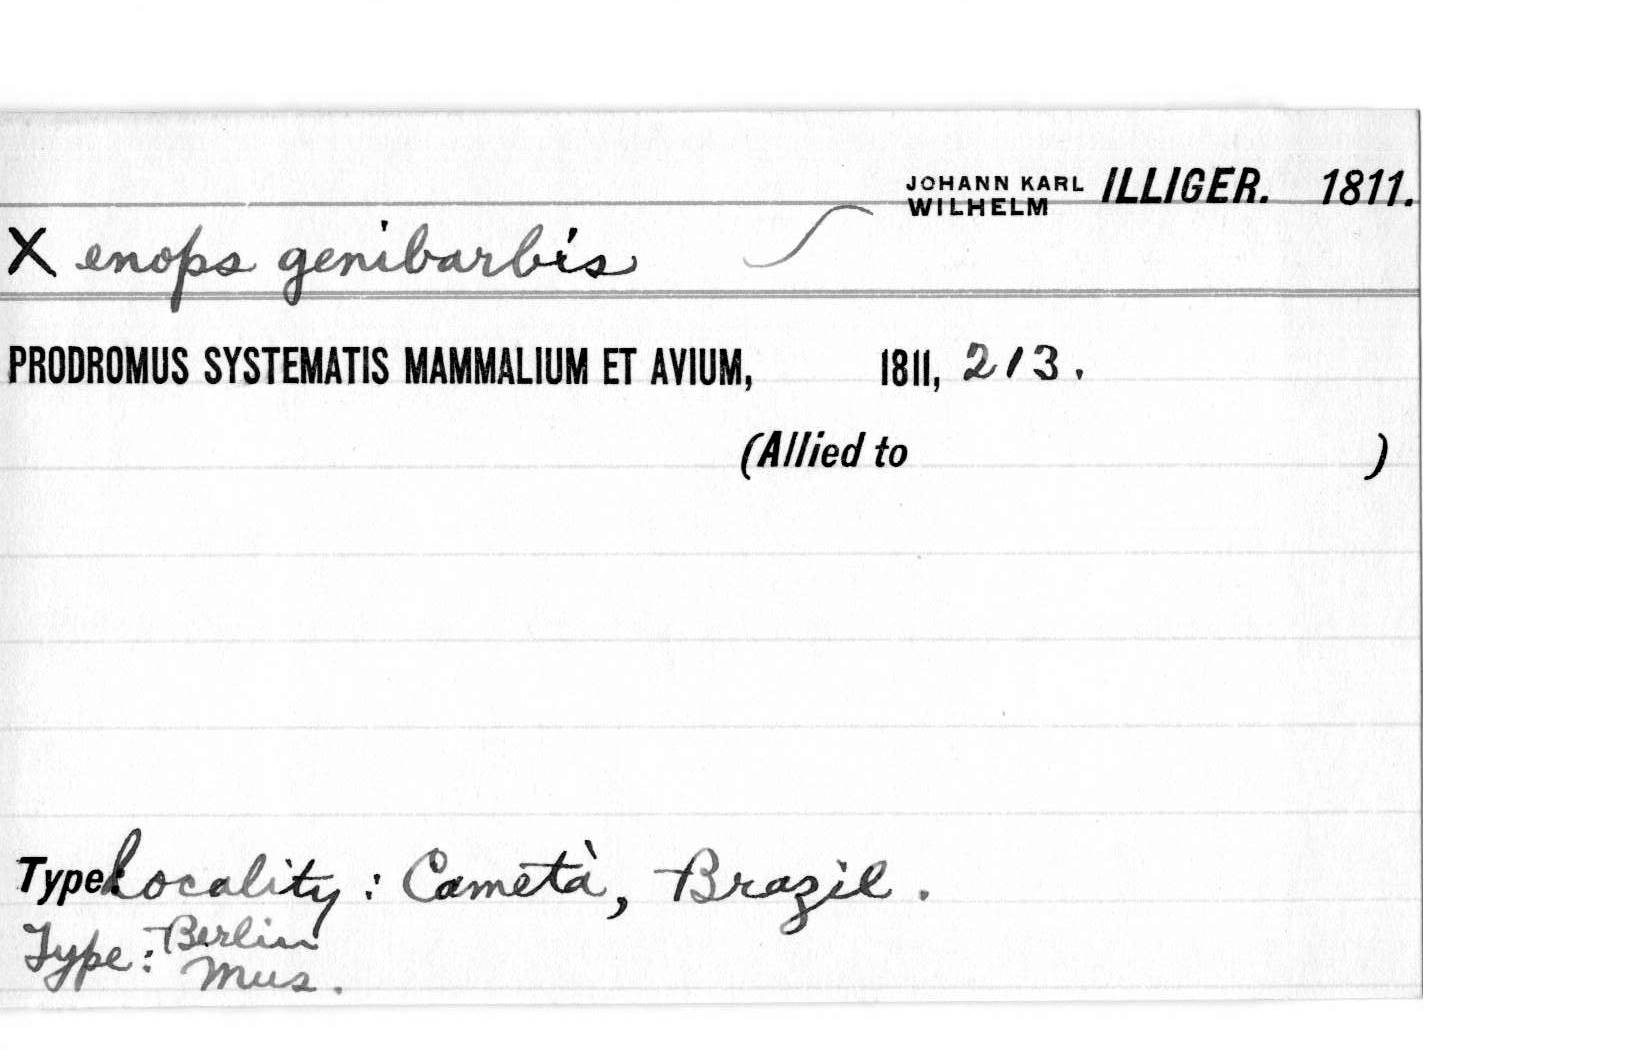 JOHANN KARL WILHELM ILLIGER. 1811.
Xenops genibarbis
PRODROMUS SYSTEMATIS MAMMALIUM ET AVIUM, 1811, 213.
(Allied to )
Type Locality: Cametà, Brazil.
Type: Berlin
Mus.